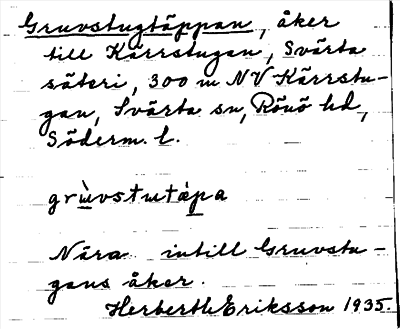 Gruvstugtäppan, åker
till Kärrstugan, Svärta
säteri, 300 m NV Kärrstu-
gan, Svärta sn, Rönö hd,
Söderm. l.
Nära intill Gruvstu-
gans åker.
Herberth Eriksson 1935.